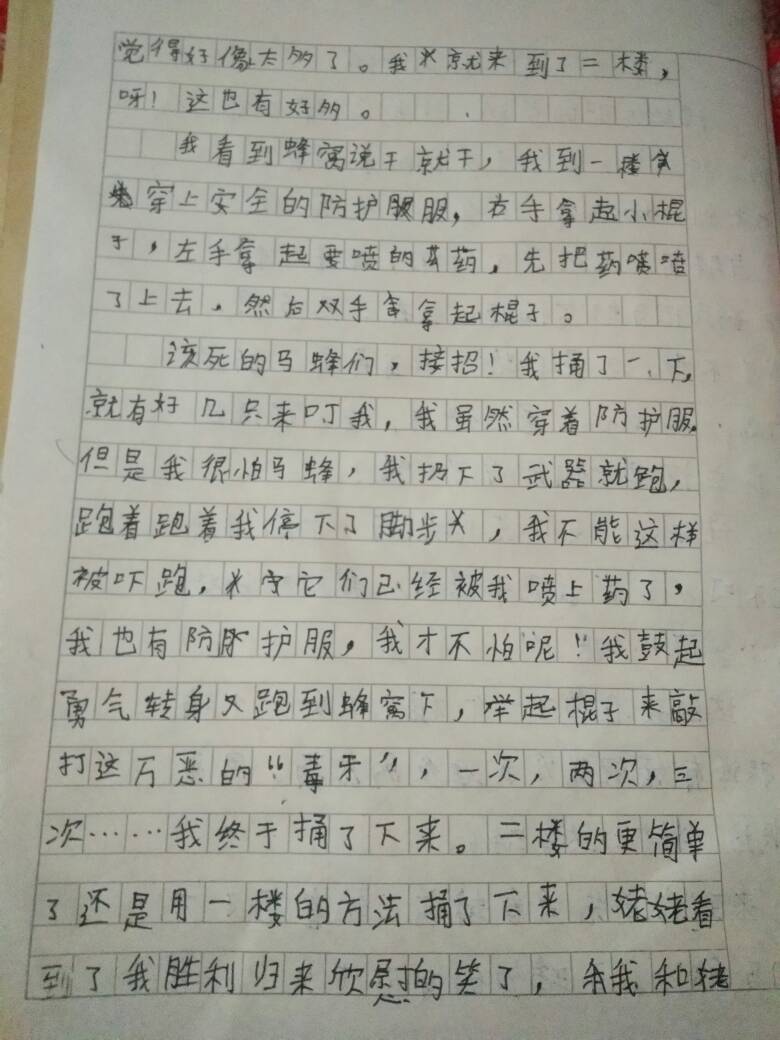 觉得好像太多了。我就来到了二楼，
呀！这也有好多。
我看到蜂窝说干就干，我到一楼
穿上安全的防护服，右手拿起小棍
子，左手拿起要喷的药，先把药喷喷
了上去，然后双手拿起棍子。
该死的马蜂们，接招！我捅了一下，
就有好几只来叮我，我虽然穿着防护服，
但是我很怕马蜂，我扔下了武器就跑，
跑着跑着我停下了脚步，我不能这样
被吓跑，它们已经被我喷上药了，
我也有防护服，我才不怕呢！我鼓起
勇气转身又跑到蜂窝下，举起棍子来敲
打这万恶的“毒牙”，一次，两次，三
次……我终于捅了下来。二楼的更简单
了还是用一楼的方法捅了下来，姥姥看
到了我胜利归来欣慰的笑了，我和姥